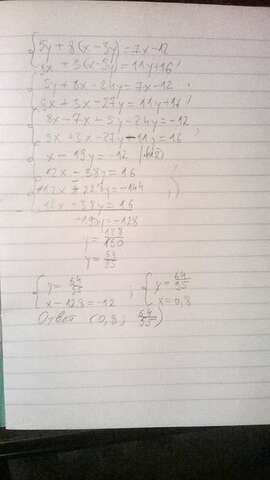 5y + 8(x - 3y) = 7x - 12
9x + 3(x - 9y) = 11y + 16
5y + 8x - 24y = 7x - 12
9x + 3x - 27y = 11y + 16
8x - 7x - 5y - 24y = -12
9x + 3x - 27y - 11y = 16
x - 19y = -12
12x - 38y = 16
12x - 228y = -144
12x - 38y = 16
y = 64/95
y = 64/95 ; y = 64/95
x - 12,8 = -12 x = 0,8
Ответ (0,8; 64/95)